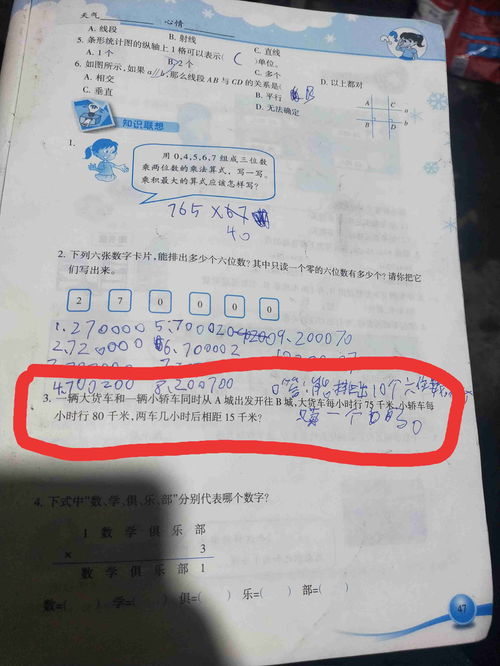 天气 心情
A. 线段 B. 射线 C. 直线
5. 条形统计图的纵轴上1格可以表示( C )单位。
A. 1个 B. 2个 C. 多个 D. 以上都对
6. 如图所示,如果a//b,那么线段AB与CD的关系是(
A. 相交 B. 平行
C. 垂直 D. 无法确定
A C a
B D b
知识联想
1.
用0,4,5,6,7组成三位数
乘两位数的乘法算式,写一写。
乘积最大的算式应该怎样写?
765×67
40
2. 下列六张数字卡片,能排出多少个六位数?其中只读一个零的六位数有多少个?请你把它
们写出来。
2 7 0 0 0 0
1.270000 5.700020 9.200070
2.720000 6.700002
4.700200 8.200700 答:能排出10个六位数
3. 一辆大货车和一辆小轿车同时从A城出发开往B城,大货车每小时行75千米,小轿车每
小时行80千米,两车几小时后相距15千米? 读一个
4. 下式中“数、学、俱、乐、部”分别代表哪个数字?
1 数 学 俱 乐 部
× 3
数 学 俱 乐 部 1
数=( ) 学=( ) 俱=( ) 乐=( ) 部=( )
47